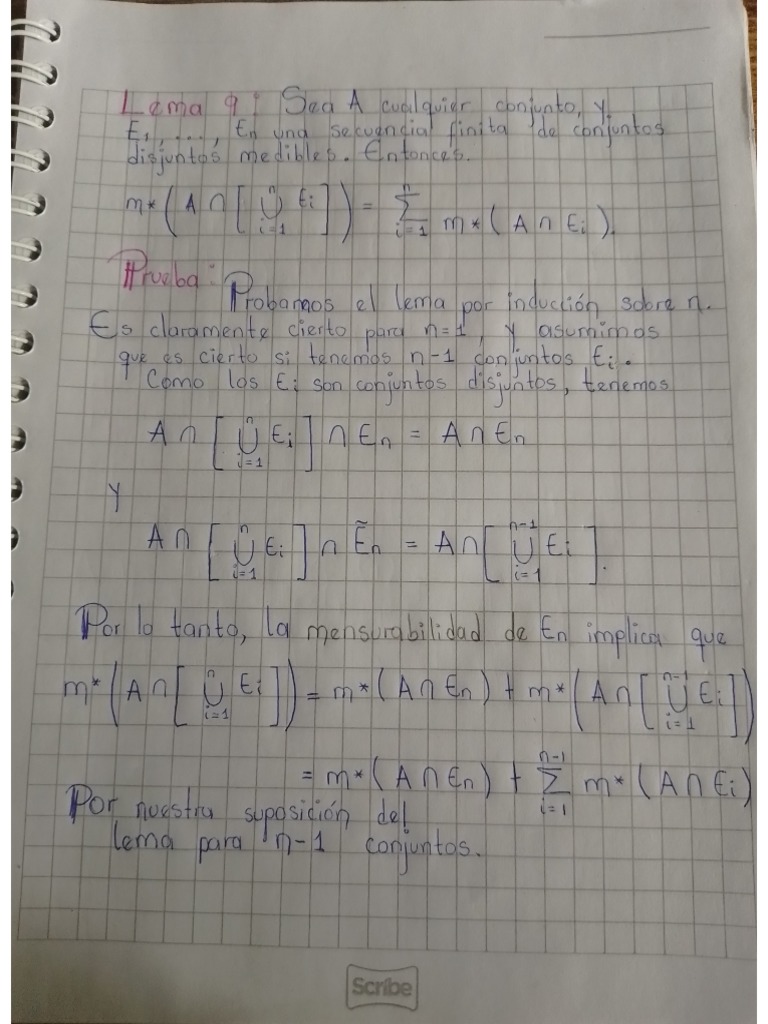 Lema 9: Sea A cualquier conjunto, y
E₁, ..., En una secuencia finita de conjuntos
disjuntos medibles. Entonces.
m*(A ∩ [⋃ᵢ₌₁ⁿ Ei]) = ∑ᵢ₌₁ⁿ m*(A ∩ Ei).
Prueba:
Probamos el lema por inducción sobre n.
Es claramente cierto para n=1, y asumimos
que es cierto si tenemos n-1 conjuntos Ei.
Como los Ei son conjuntos disjuntos, tenemos
A ∩ [⋃ᵢ₌₁ⁿ Ei] ∩ En = A ∩ En
Y
A ∩ [⋃ᵢ₌₁ⁿ Ei] ∩ Ẽn = A ∩ [⋃ᵢ₌₁ⁿ⁻¹ Ei].
Por lo tanto, la mensurabilidad de En implica que
m*(A ∩ [⋃ᵢ₌₁ⁿ Ei]) = m*(A ∩ En) + m*(A ∩ [⋃ᵢ₌₁ⁿ⁻¹ Ei])
= m*(A ∩ En) + ∑ᵢ₌₁ⁿ⁻¹ m*(A ∩ Ei)
Por nuestra suposición del
lema para n-1 conjuntos.
Scribe